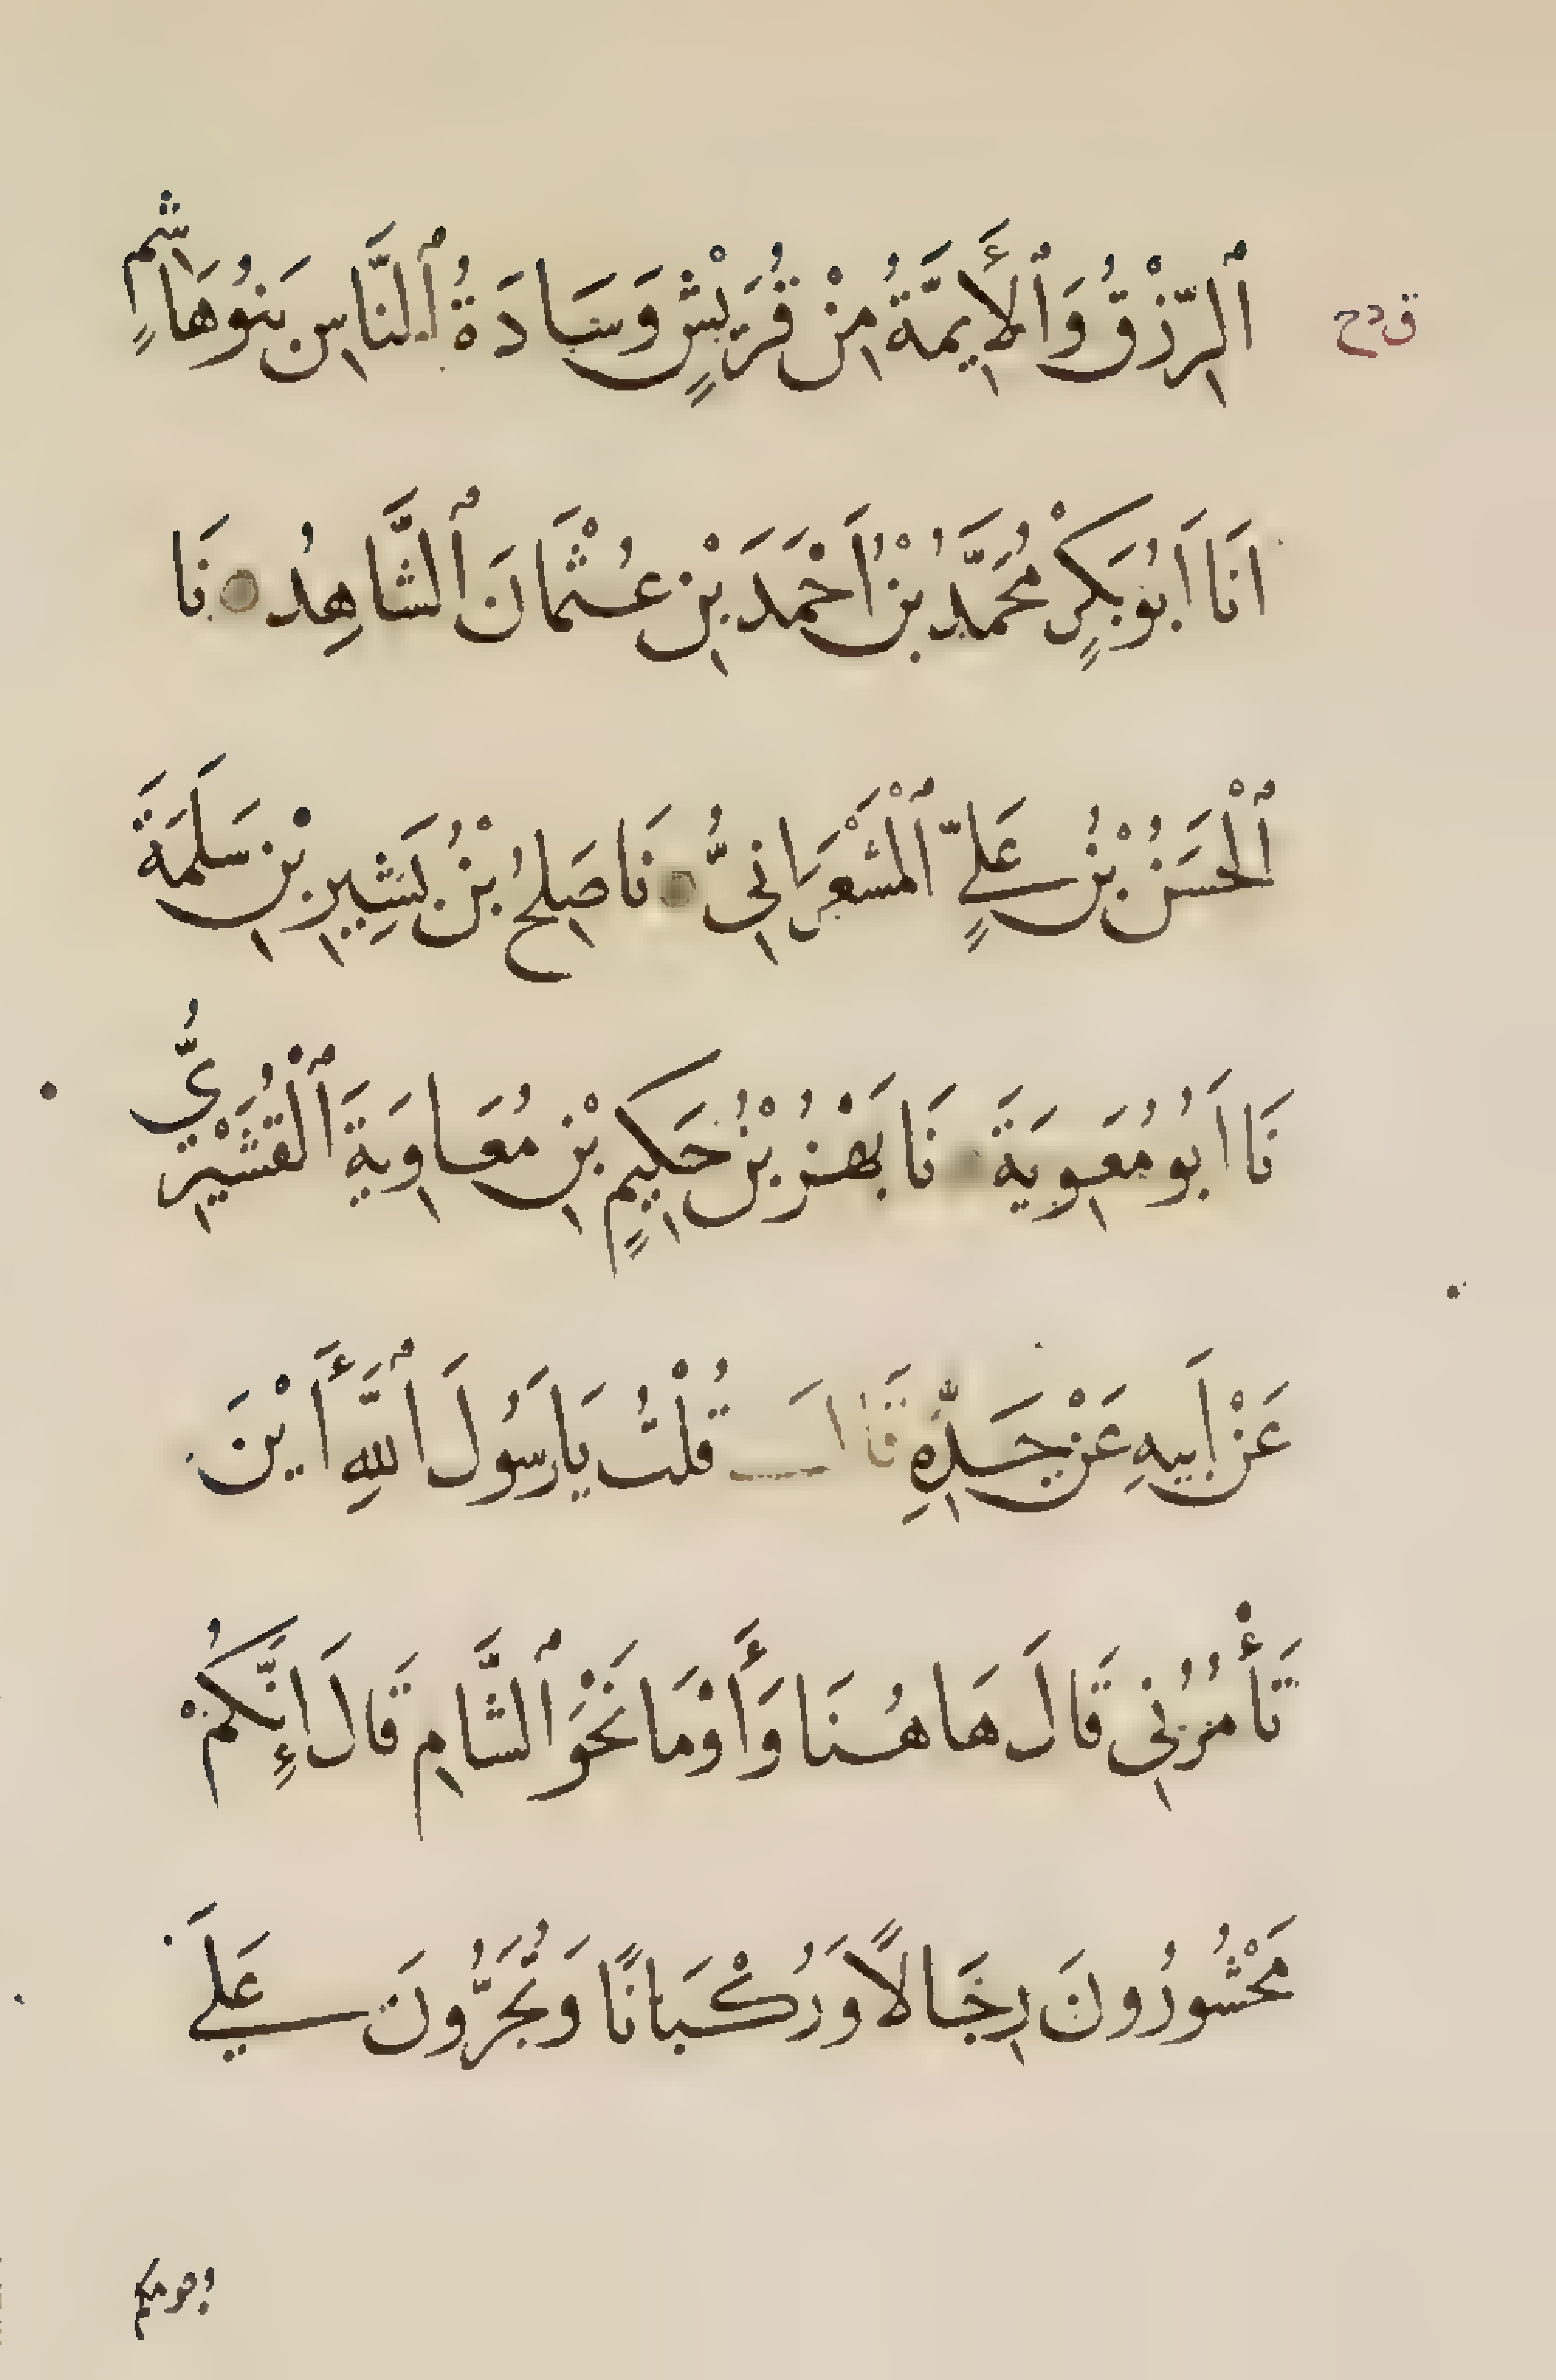 ق دح
ٱلرِّزْقُ وَٱلْأَيِمَّةُ مِنْ قُرَيْشٍ وَسَادَةُ ٱلنَّاسِ بَنُوهَاشِمٍ
اَنَا اَبُو بَكْرٍ مُحَمَّدُ بْنُ اَحْمَدَ بْنِ عُثْمَانَ ٱلشَّاهِدُ نَا
ٱلْحَسَنُ بْنُ عَلِيٍّ ٱلْمَشْعَرَانِيُّ نَا صَلِحُ بْنُ بَشِيرِ بْنِ سَلَمَةَ
نَا اَبُو مُعَوِيَةَ نَا بَهْزُ بْنُ حَكِيمِ بْنِ مُعَاوِيَةَ ٱلْقُشَيْرِيُّ
عَنْ اَبِيهِ عَنْ جَدِّهِ قَالَ قُلْتُ يَا رَسُولَ ٱللَّهِ أَيْنَ
تَأْمُرُنِي قَالَ هَاهُنَا وَأَوْمَا نَحْوَ ٱلشَّامِ قَالَ إِنَّكُمْ
مَحْشُورُونَ رِجَالًا وَرُكْبَانًا وَتُجَرُّونَ عَلَي
وجوهكم